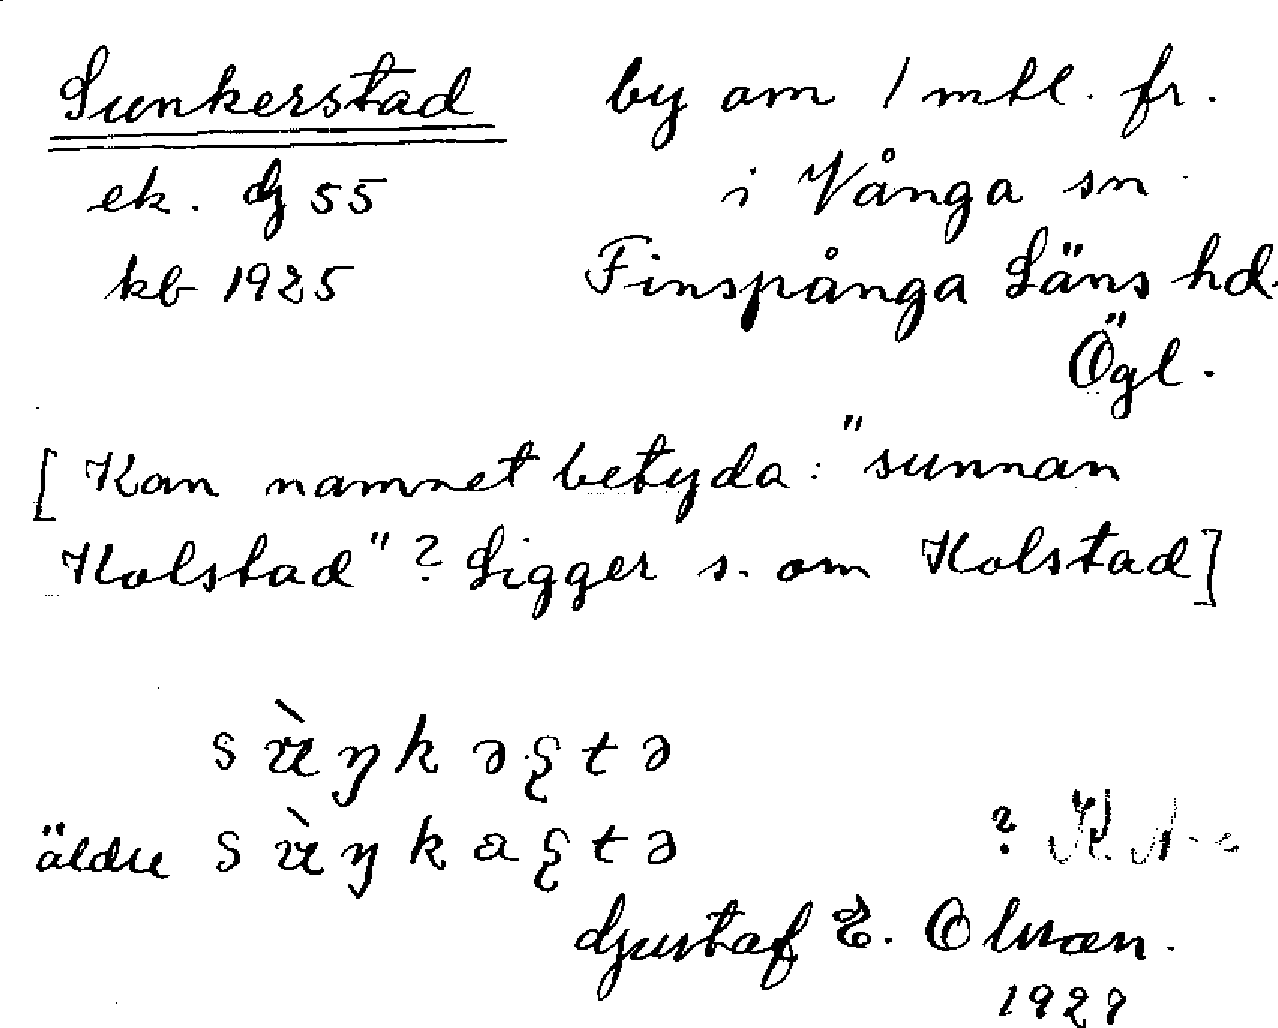 Sunkerstad by om 1 mtl. fr.
ek. dz 55 i Vånga sn
kb 1925 Finspånga Läns hd.
Ögl.
[Kan namnet betyda: "sunnan
Kolstad"? Ligger s. om Kolstad]
sùŋkəʂtə
äldre sùŋkaʂtə ?
Gustaf E. Olsson.